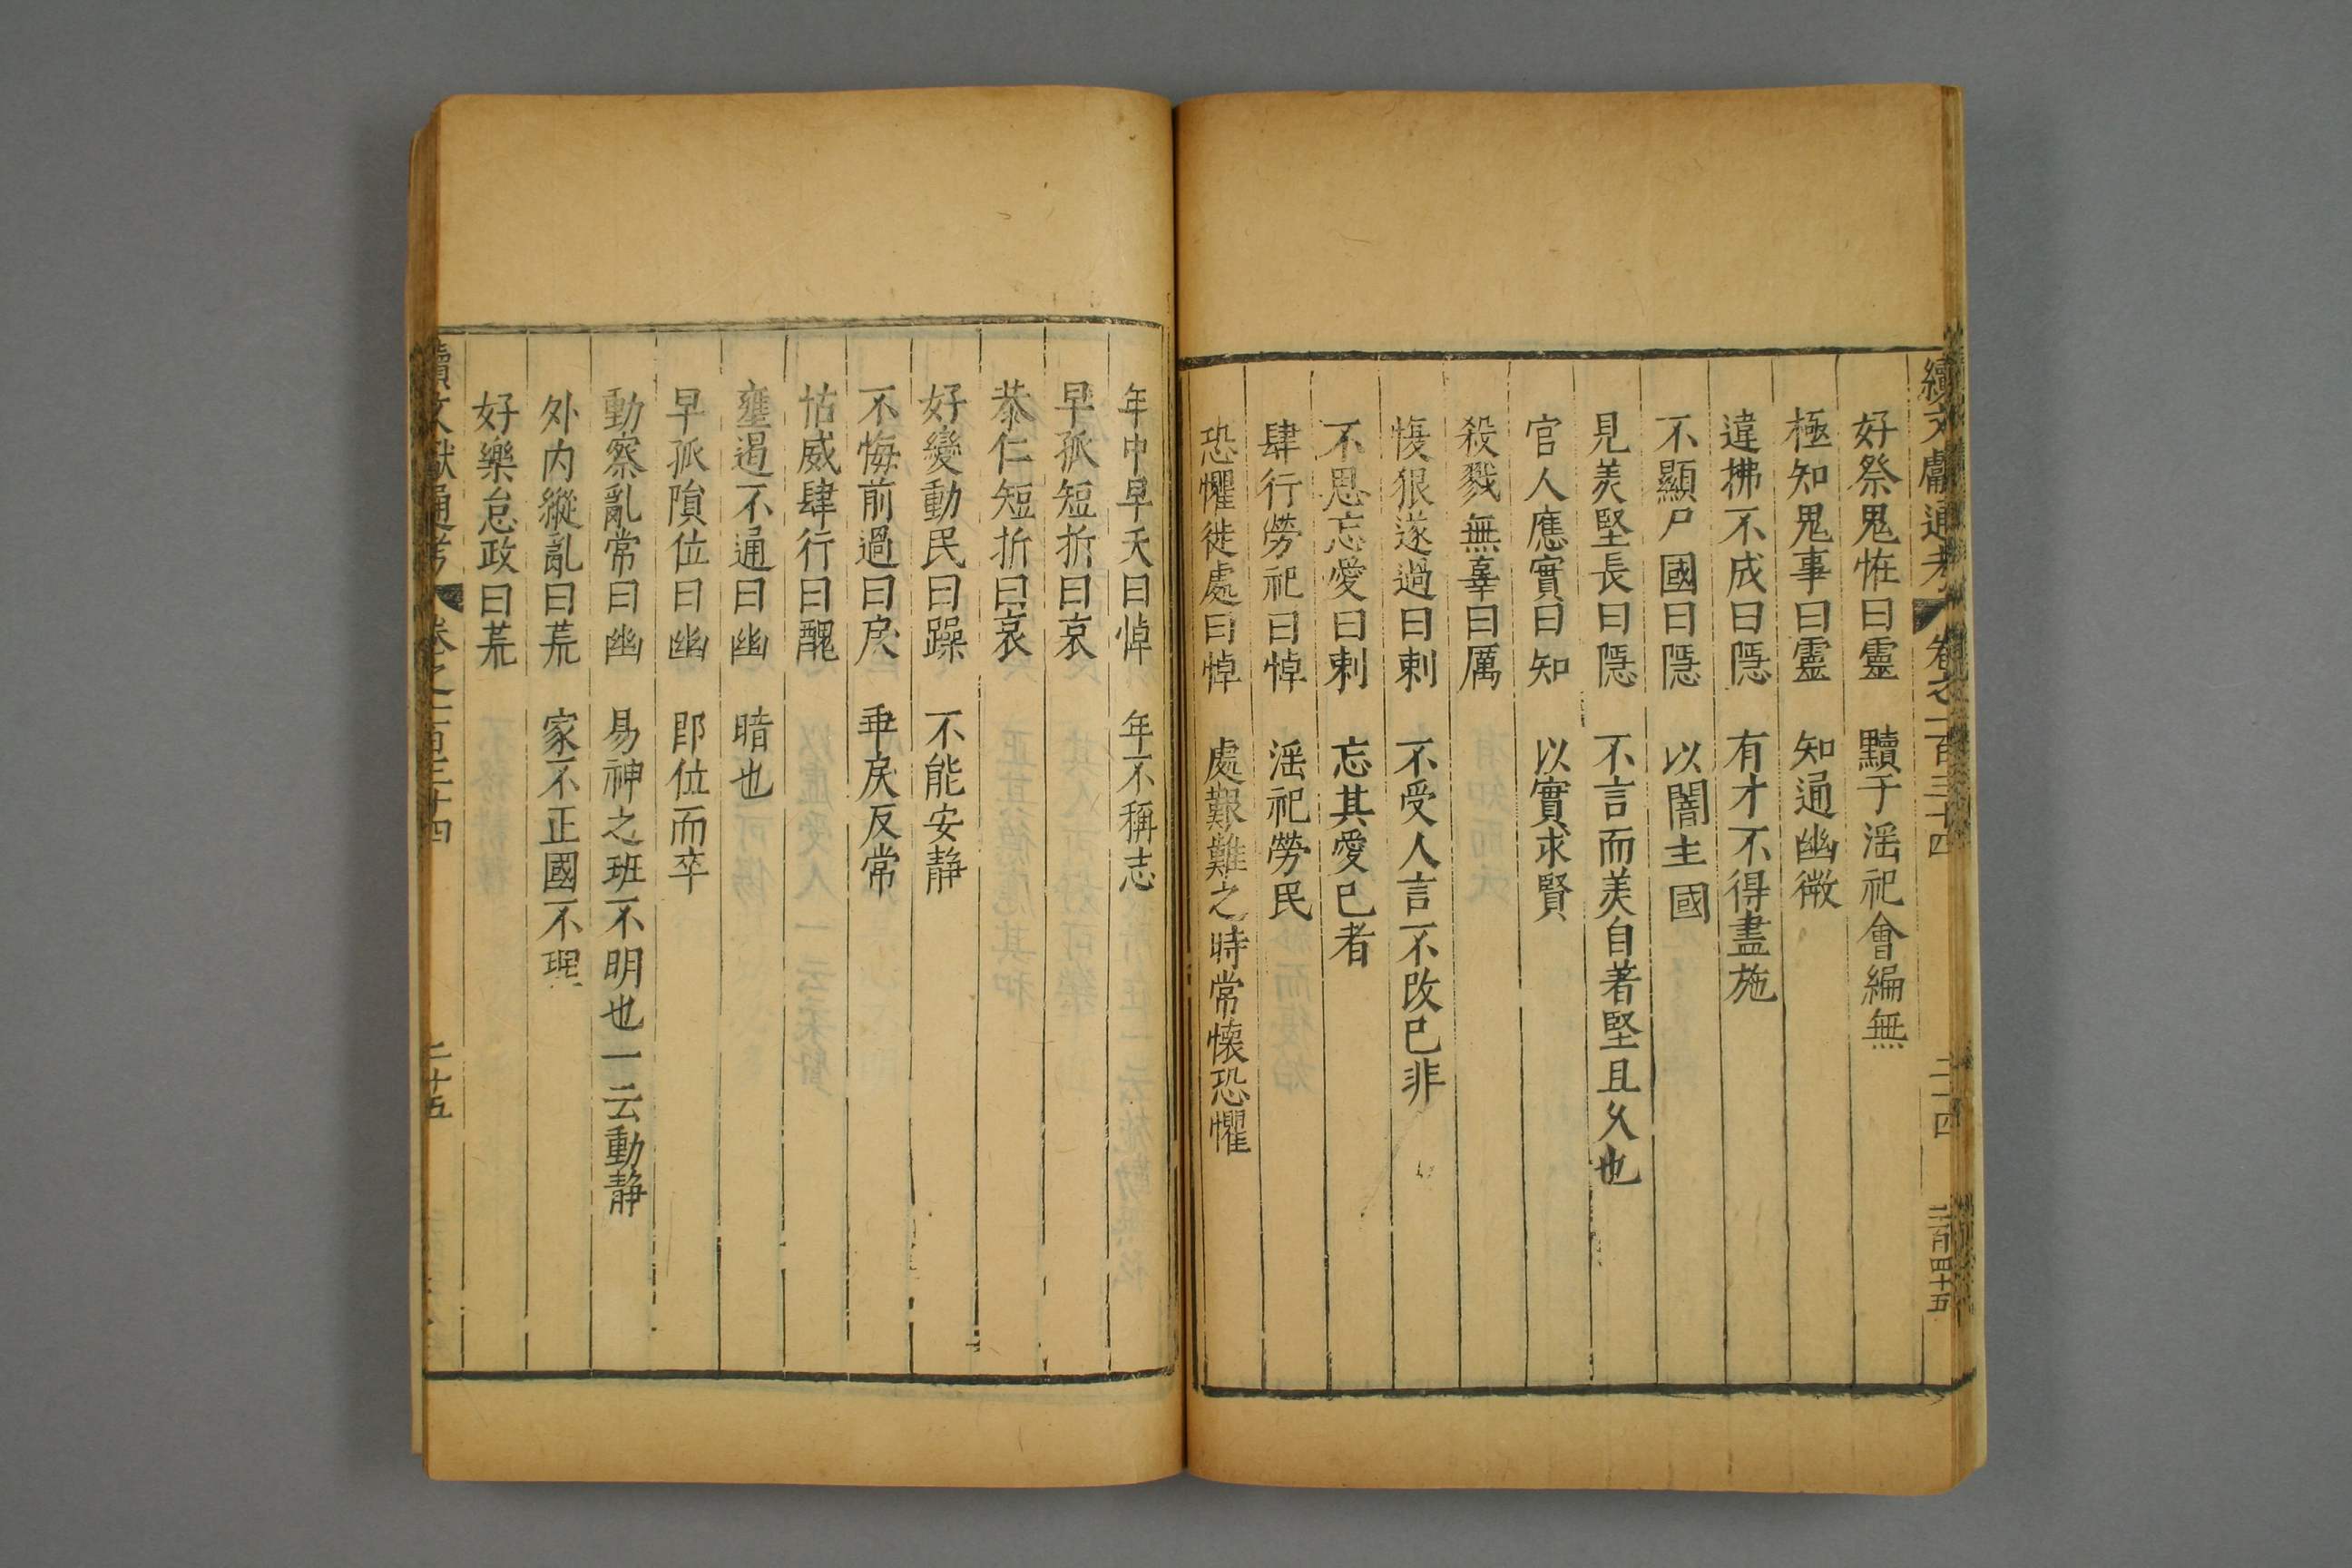 續文獻通考 卷之一百三十四 二十四 二百四十五
好祭鬼怪曰靈 黷于淫祀會編無
極知鬼事曰靈 知通幽微
違拂不成曰隱 有才不得盡施
不顯尸國曰隱 以闇主國
見美堅長曰隱 不言而美自著堅且久也
官人應實曰知 以實求賢
殺戮無辜曰厲
愎狠遂過曰剌 不受人言不改已非
不思忘愛曰剌 忘其愛已者
肆行勞祀曰悼 淫祀勞民
恐懼徙處曰悼 處艱難之時常懷恐懼
年中早夭曰悼 年不稱志
早孤短折曰哀
恭仁短折曰哀
好變動民曰躁 不能安靜
不悔前過曰戾 乖戾反常
怙威肆行曰醜
壅遏不通曰幽 暗也
早孤隕位曰幽 即位而卒
動察亂常曰幽 易神之班不明也一云動靜
外内縱亂曰荒 家不正國不理
好樂怠政曰荒
續文獻通考 卷之一百三十四 二十五